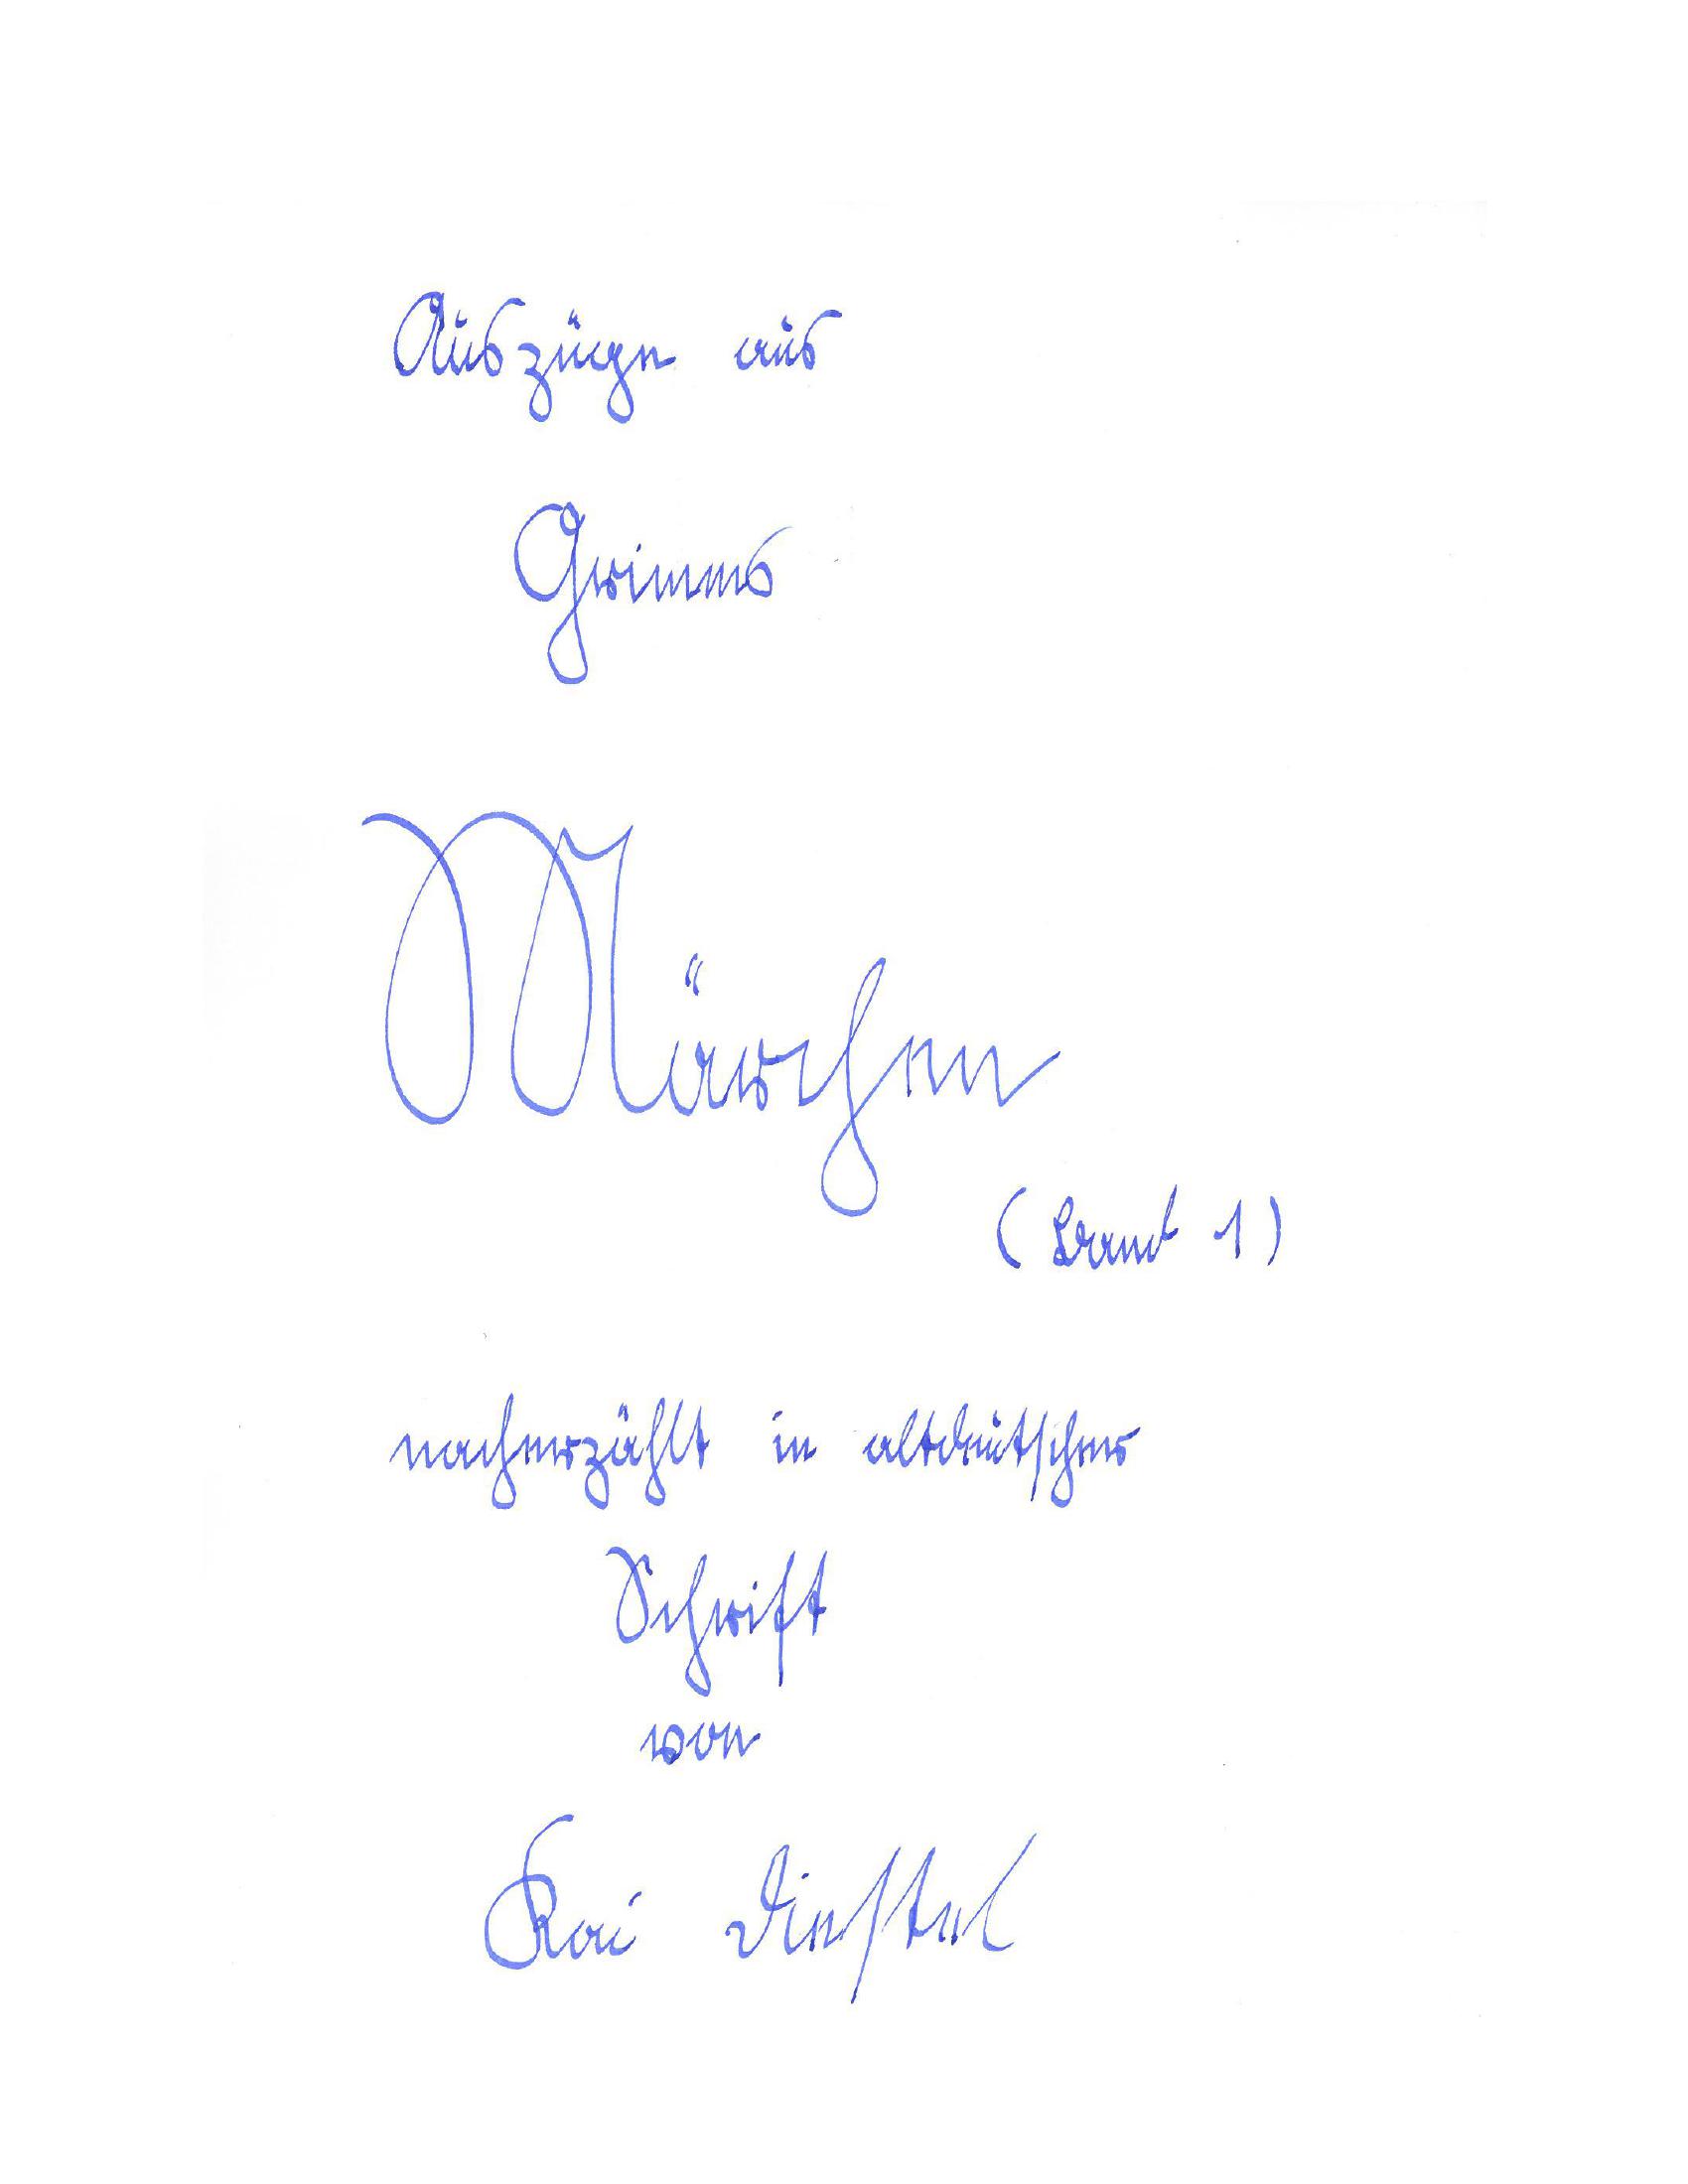 Auszüge aus
Grimms
Märchen
(Band 1)
nacherzählt in altdeutscher
Schrift
von
Kai Dinstel